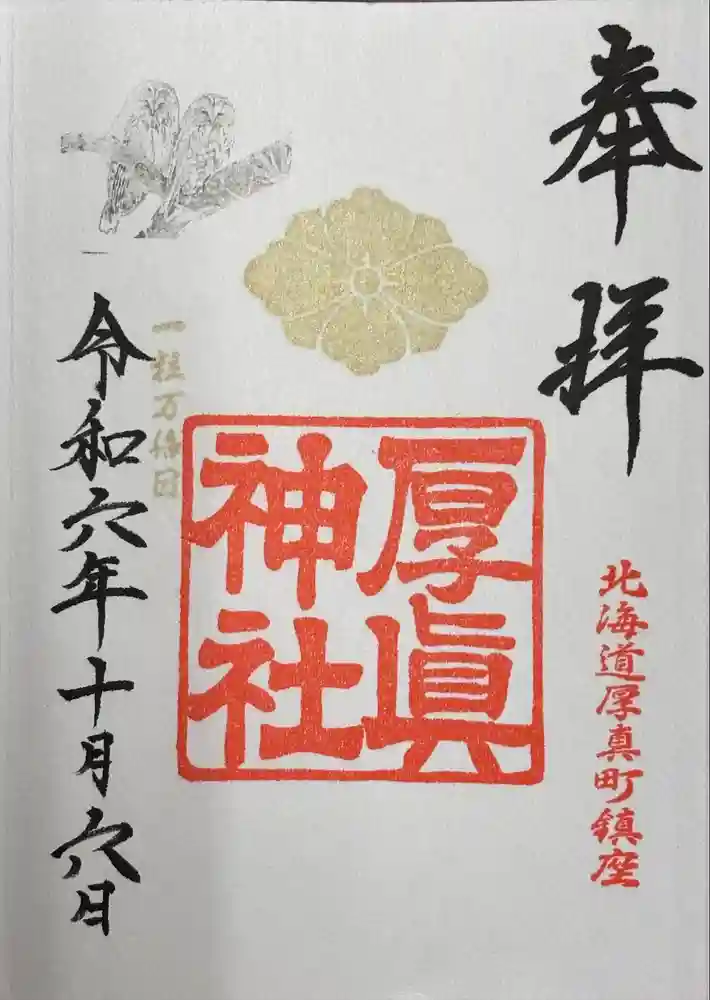 奉拝
北海道厚真町鎮座
厚眞
神社
一粒万倍日
令和六年十月六日